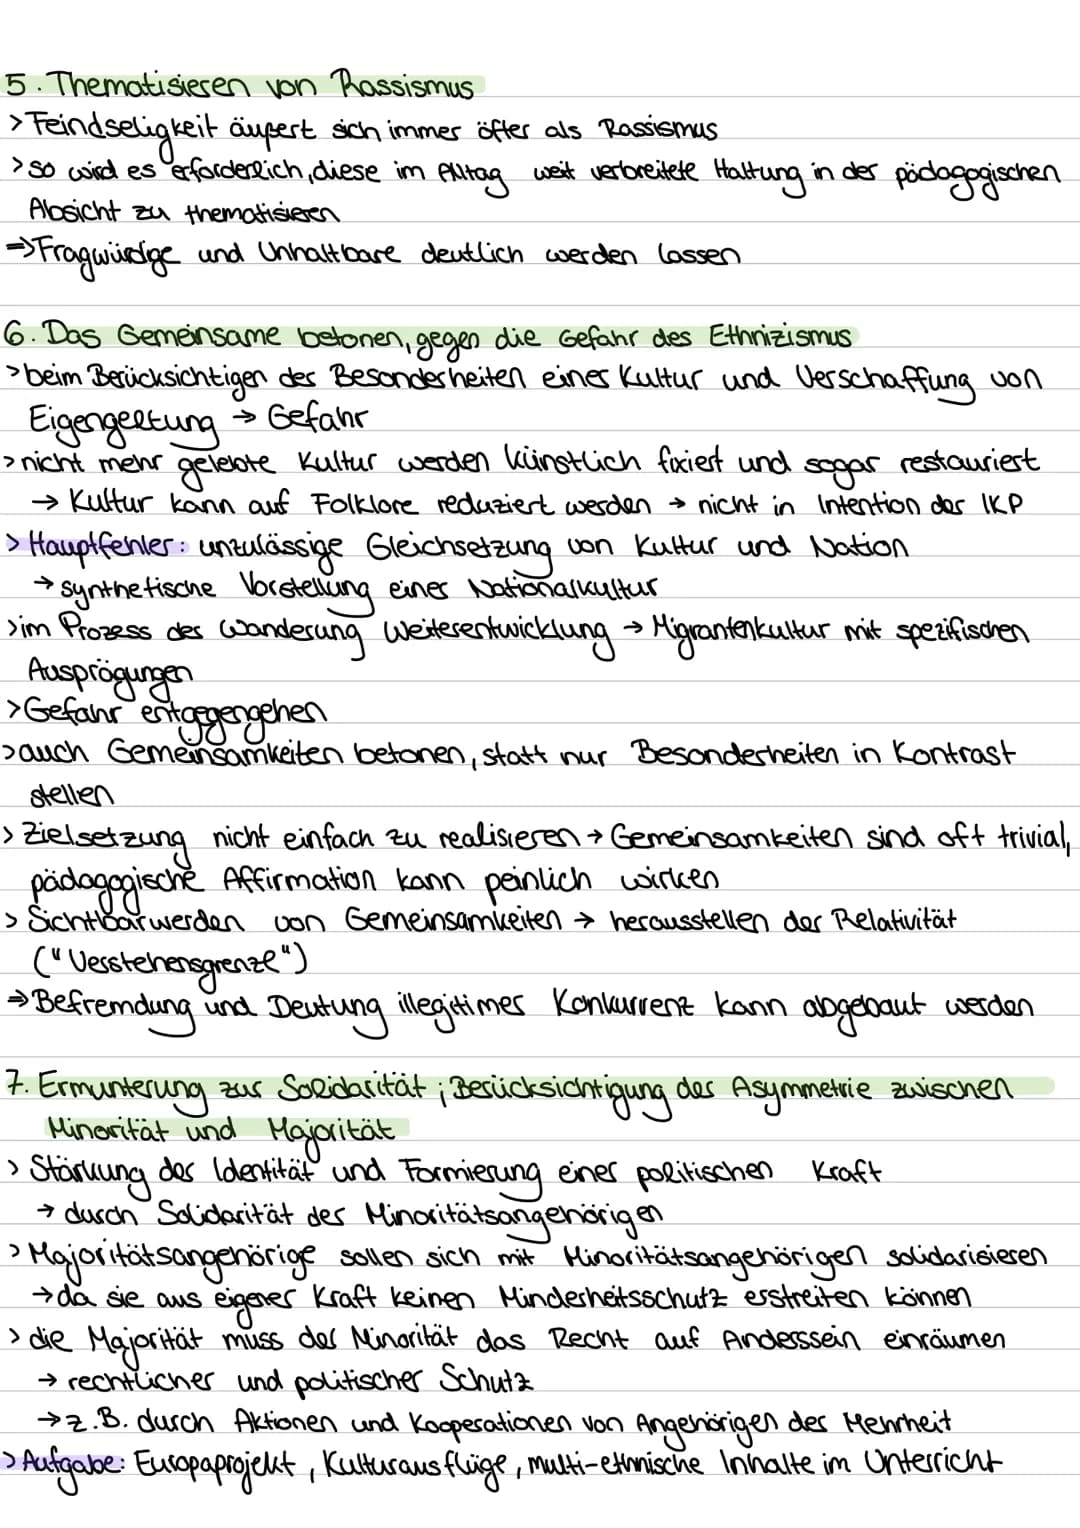 5. Thematisieren von Rassismus
> Feindseligkeit äußert sich immer öfter als Rassismus
> so wird es erforderlich, diese im Alltag weit verbreitete Haltung in der pädagogischen
Absicht zu thematisieren
⇒ Fragwürdige und Unhaltbare deutlich werden lassen
6. Das Gemeinsame betonen, gegen die Gefahr des Ethnizismus
> beim Berücksichtigen der Besonderheiten einer Kultur und Verschaffung von
Eigengeltung → Gefahr
> nicht mehr gelebte Kultur werden künstlich fixiert und sogar restauriert
→ Kultur kann auf Folklore reduziert werden → nicht in Intention der IKP
> Hauptfehler: unzulässige Gleichsetzung von Kultur und Nation
→ synthetische Vorstellung einer Nationalkultur
> im Prozess der Wanderung Weiterentwicklung → Migrantenkultur mit spezifischen
Ausprägungen
> Gefahr entgegengehen
> auch Gemeinsamkeiten betonen, statt nur Besonderheiten in Kontrast
stellen
> Zielsetzung nicht einfach zu realisieren → Gemeinsamkeiten sind oft trivial,
pädagogische Affirmation kann peinlich wirken
> Sichtbarwerden von Gemeinsamkeiten → herausstellen der Relativität
("Verstehensgrenze")
⇒ Befremdung und Deutung illegitimer Konkurrenz kann abgebaut werden
7. Ermunterung zur Solidarität; Berücksichtigung der Asymmetrie zwischen
Minorität und Majorität
> Stärkung der Identität und Formierung einer politischen Kraft
→ durch Solidarität der Minoritätsangehörigen
> Majoritätsangehörige sollen sich mit Minoritätsangehörigen solidarisieren
→ da sie aus eigener Kraft keinen Minderheitsschutz erstreiten können
> die Majorität muss der Minorität das Recht auf Anderssein einräumen
→ rechtlicher und politischer Schutz
→ z.B. durch Aktionen und Kooperationen von Angehörigen der Mehrheit
> Aufgabe: Europaprojekt, Kulturausflüge, multi-ethnische Inhalte im Unterricht